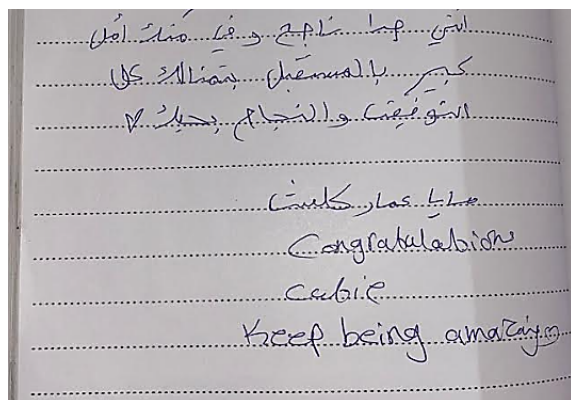 انتي جدا ناجح و في منك امل
كبير بالمستقبل بتمنالك كل
التوفيق والنجاح بحبك
مايا عمار
Congratulation
cutie
Keep being amazing